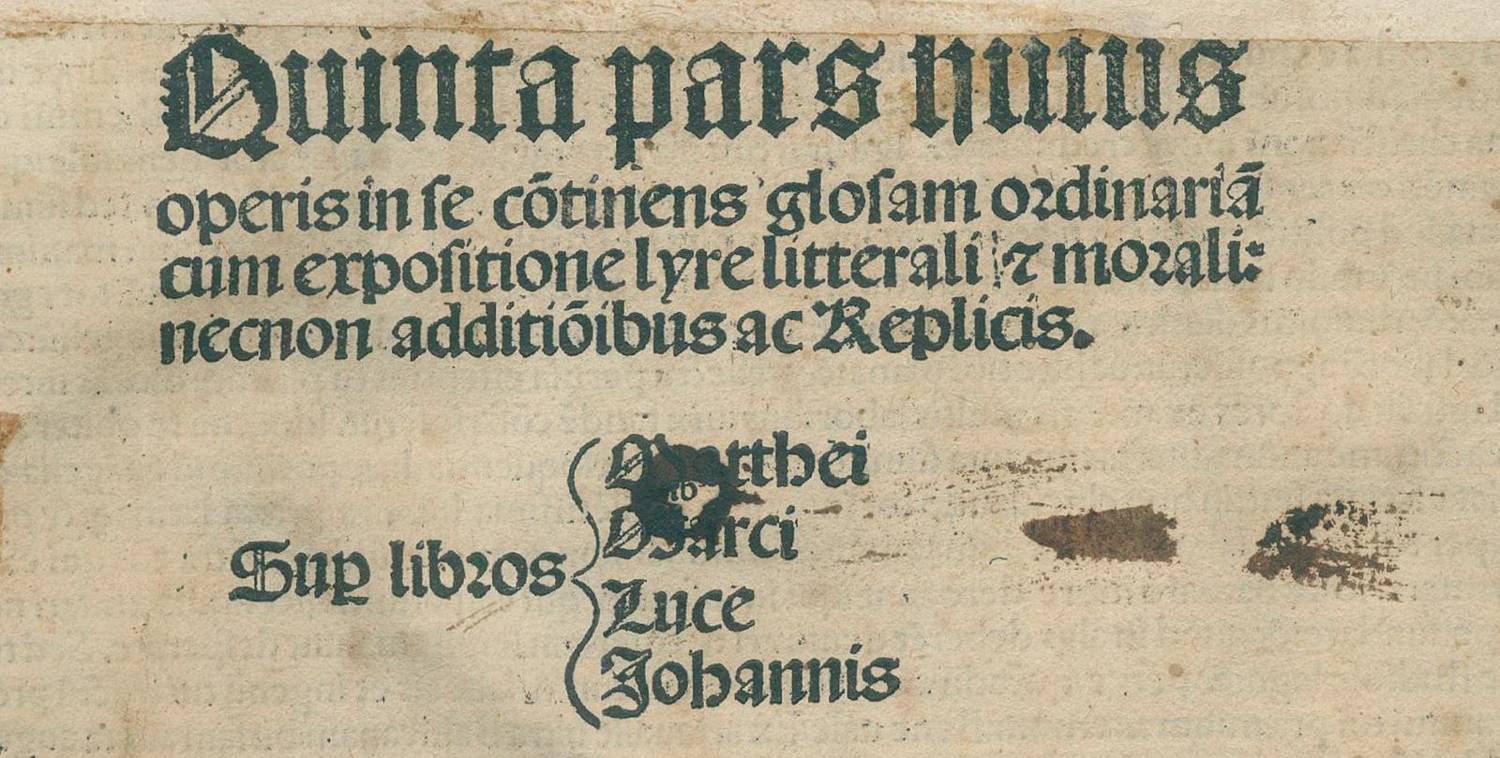 Quinta pars huius
operis in ſe cōtinens gloſam ordinariā
cum expoſitione lyre litterali ⁊ morali:
necnon additiōibus ac Replicis.
Matthei
Marci
Suꝑ libros
Luce
Johannis